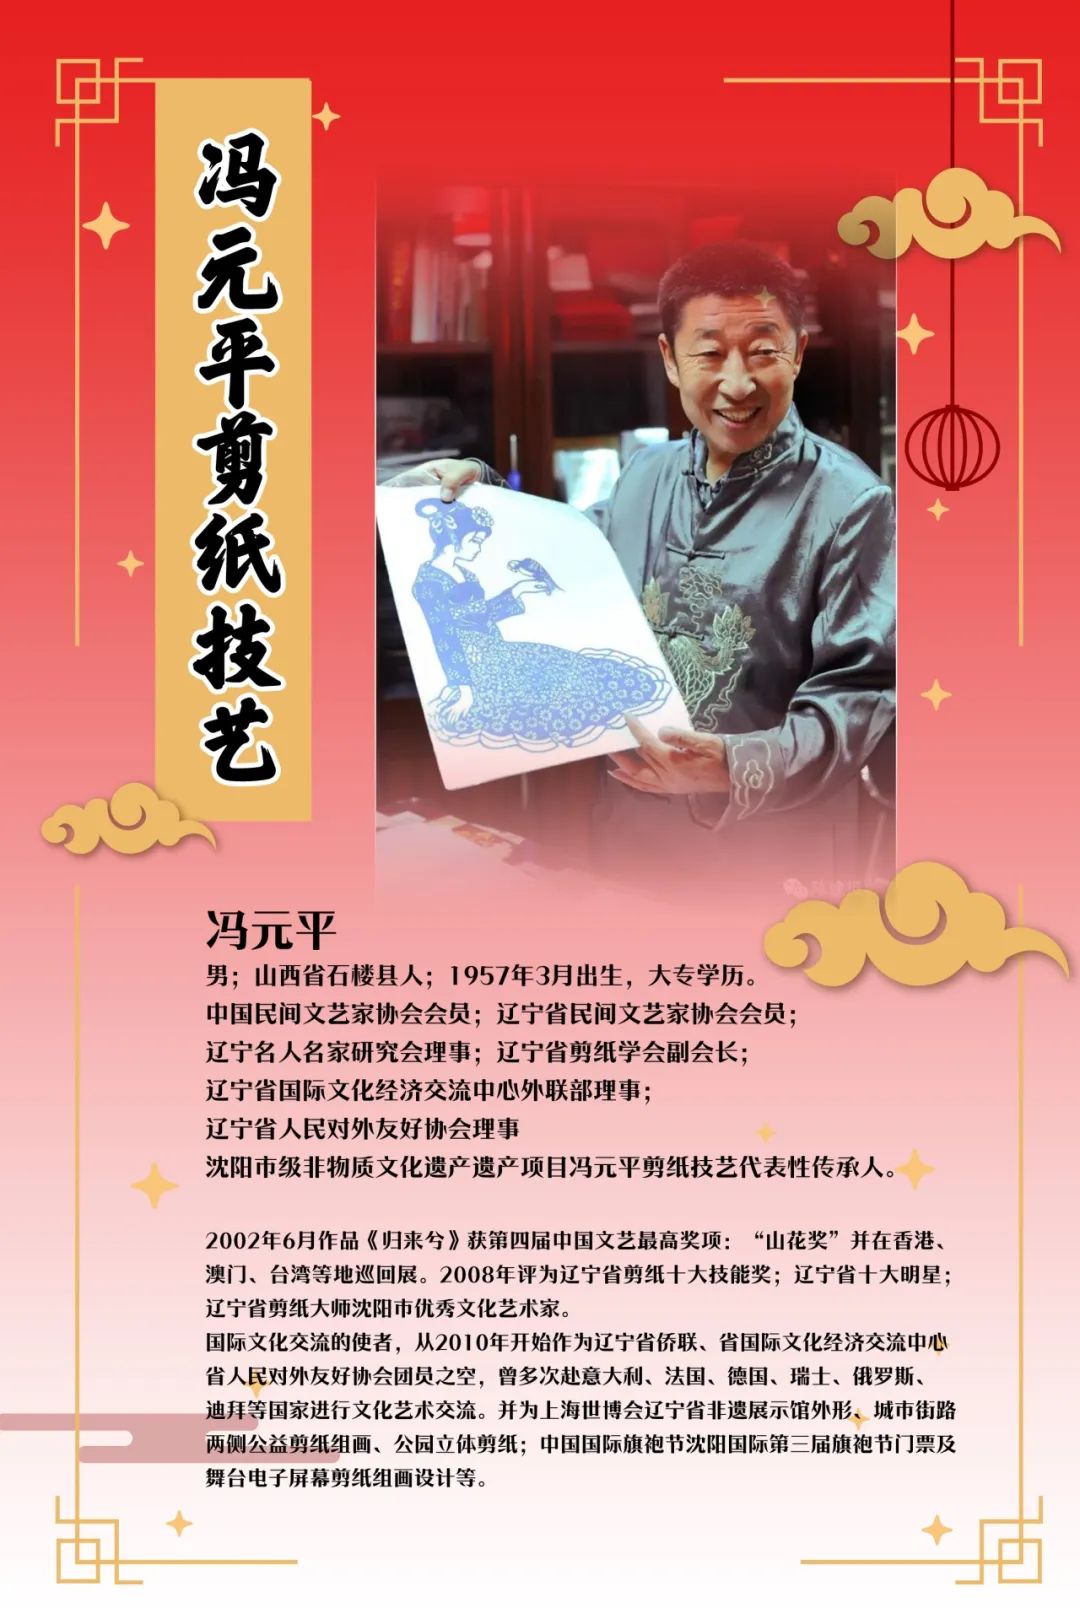 冯元平剪纸技艺
冯元平
男；山西省石楼县人；1957年3月出生，大专学历。
中国民间文艺家协会会员；辽宁省民间文艺家协会会员；
辽宁名人名家研究会理事；辽宁省剪纸学会副会长；
辽宁省国际文化经济交流中心外联部理事；
辽宁省人民对外友好协会理事
沈阳市级非物质文化遗产遗产项目冯元平剪纸技艺代表性传承人。
2002年6月作品《归来兮》获第四届中国文艺最高奖项：“山花奖”并在香港、
澳门、台湾等地巡回展。2008年评为辽宁省剪纸十大技能奖；辽宁省十大明星；
辽宁省剪纸大师沈阳市优秀文化艺术家。
国际文化交流的使者，从2010年开始作为辽宁省侨联、省国际文化经济交流中心
省人民对外友好协会团员之空，曾多次赴意大利、法国、德国、瑞士、俄罗斯、
迪拜等国家进行文化艺术交流。并为上海世博会辽宁省非遗展示馆外形、城市街路
两侧公益剪纸组画、公园立体剪纸；中国国际旗袍节沈阳国际第三届旗袍节门票及
舞台电子屏幕剪纸组画设计等。